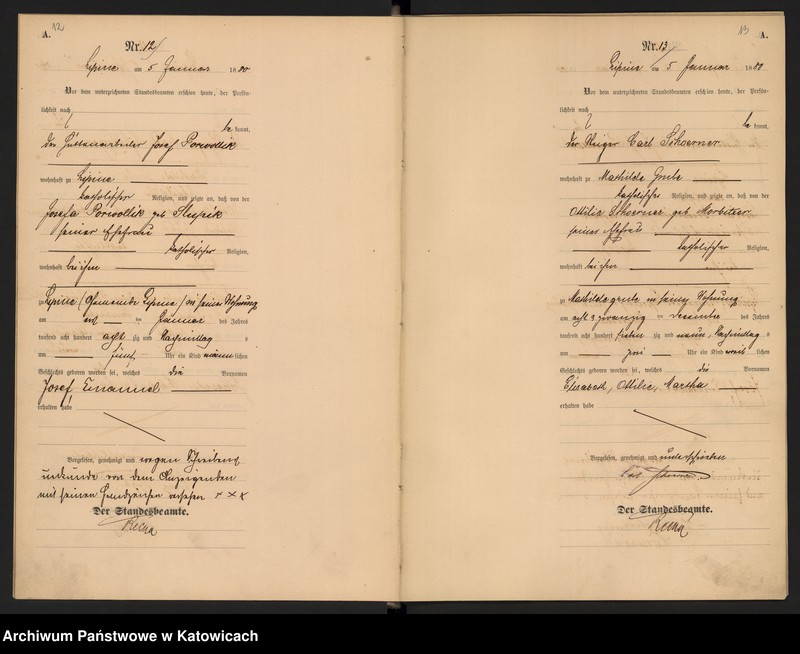 12
A.
Nr. 12/
Lipine am 5 Januar 1880
Vor dem unterzeichneten Standesbeamten erschien heute, der Persön-
lichkeit nach
be kannt,
der Hüttenarbeiter Josef Porwollik
wohnhaft zu Lipine
katholischer Religion, und zeigte an, daß von der
Josefa Porwollik geb Slupik
seiner Ehefrau
katholischer Religion,
wohnhaft bei ihm
zu Lipine (Gemeinde Lipine) in seiner Wohnung
am ten Januar des Jahres
tausend acht hundert acht zig und Nachmittag s
um fünf Uhr ein Kind männ lichen
Geschlechts geboren worden sei, welches die Vornamen
Josef Emanuel
erhalten habe
Vorgelesen, genehmigt und wegen Schreibens
unkunde von dem Anzeigenden
mit seinen Handzeichen versehen x x x
Der Standesbeamte.
13
A.
Nr. 13/
Lipine am 5 Januar 1880
Vor dem unterzeichneten Standesbeamten erschien heute, der Persön-
lichkeit nach
be kannt,
der Heizer Carl Schoerner
wohnhaft zu Mathilde Grube
katholischer Religion, und zeigte an, daß von der
Ottilie Schoerner geb Morbitzer
seiner Ehefrau
katholischer Religion,
wohnhaft bei ihm
zu Mathildegrube in seiner Wohnung
am acht u zwanzig ten Dezember des Jahres
tausend acht hundert sieben zig und neun, Nachmittag s
um zwei Uhr ein Kind weib lichen
Geschlechts geboren worden sei, welches die Vornamen
Elisabeth, Ottilie, Martha
erhalten habe
Vorgelesen, genehmigt und unterschrieben
Carl Schoerner
Der Standesbeamte.
Archiwum Państwowe w Katowicach